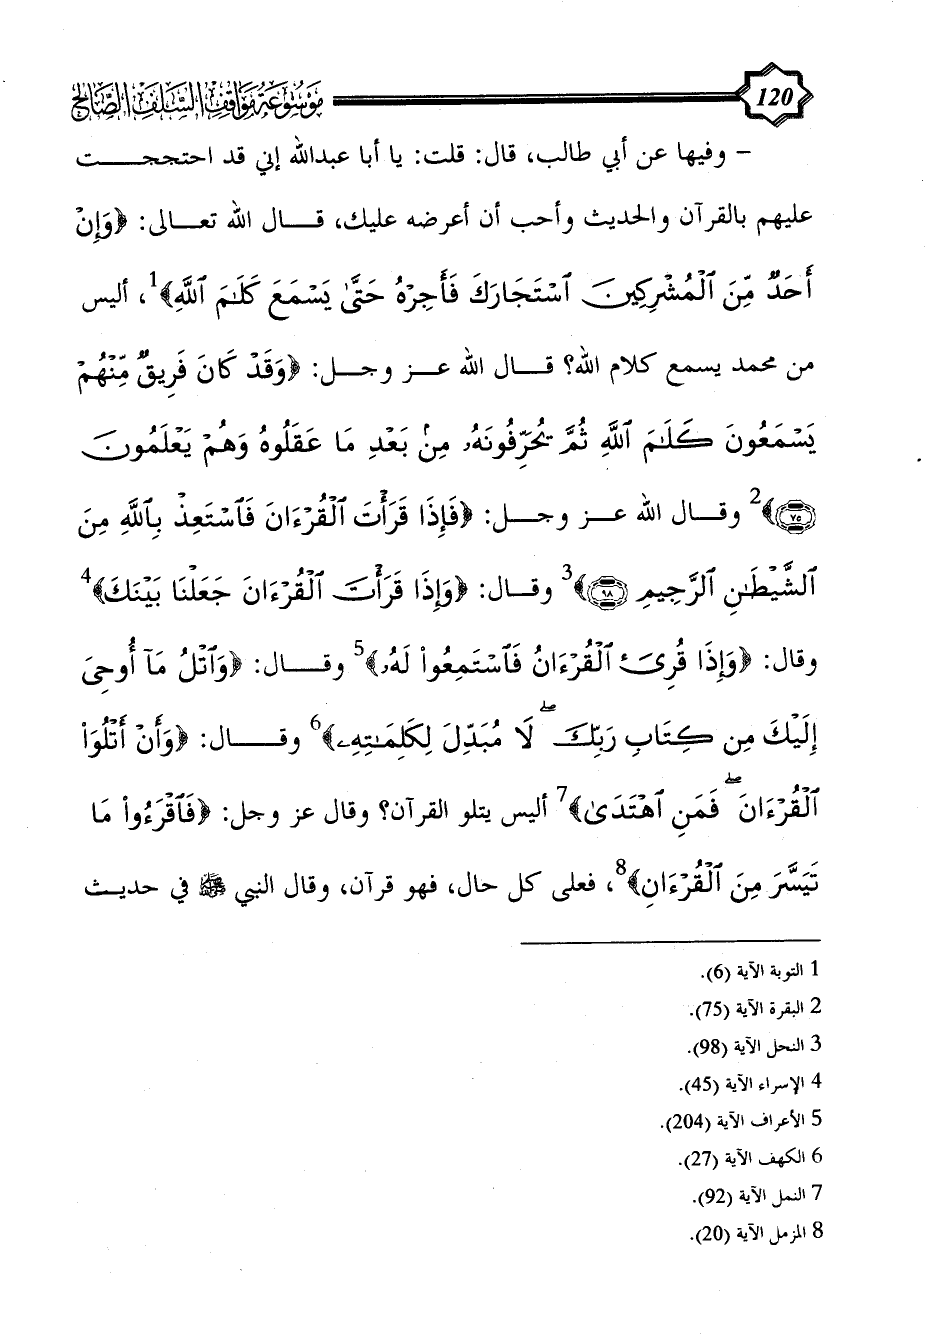 موسوعة مواقف السلف الصالح 120
– وفيها عن أبي طالب، قال: قلت: يا أبا عبدالله إني قد احتججت
عليهم بالقرآن والحديث وأحب أن أعرضه عليك، قال الله تعالى: ﴿وَإِنْ
أَحَدٌ مِّنَ ٱلْمُشْرِكِينَ ٱسْتَجَارَكَ فَأَجِرْهُ حَتَّىٰ يَسْمَعَ كَلَٰمَ ٱللَّهِ﴾1، أليس
من محمد يسمع كلام الله؟ قال الله عز وجل: ﴿وَقَدْ كَانَ فَرِيقٌ مِّنْهُمْ
يَسْمَعُونَ كَلَٰمَ ٱللَّهِ ثُمَّ يُحَرِّفُونَهُۥ مِنۢ بَعْدِ مَا عَقَلُوهُ وَهُمْ يَعْلَمُونَ
٧٥﴾2 وقال الله عز وجل: ﴿فَإِذَا قَرَأْتَ ٱلْقُرْءَانَ فَٱسْتَعِذْ بِٱللَّهِ مِنَ
ٱلشَّيْطَٰنِ ٱلرَّجِيمِ ٩٨﴾3 وقال: ﴿وَإِذَا قَرَأْتَ ٱلْقُرْءَانَ جَعَلْنَا بَيْنَكَ﴾4
وقال: ﴿وَإِذَا قُرِئَ ٱلْقُرْءَانُ فَٱسْتَمِعُوا۟ لَهُۥ﴾5 وقال: ﴿وَٱتْلُ مَآ أُوحِىَ
إِلَيْكَ مِن كِتَابِ رَبِّكَ ۖ لَا مُبَدِّلَ لِكَلِمَٰتِهِۦ﴾6 وقال: ﴿وَأَنْ أَتْلُوَا۟
ٱلْقُرْءَانَ ۖ فَمَنِ ٱهْتَدَىٰ﴾7 أليس يتلو القرآن؟ وقال عز وجل: ﴿فَٱقْرَءُوا۟ مَا
تَيَسَّرَ مِنَ ٱلْقُرْءَانِ﴾8، فعلى كل حال، فهو قرآن، وقال النبي ﷺ في حديث
1 التوبة الآية (6).
2 البقرة الآية (75).
3 النحل الآية (98).
4 الإسراء الآية (45).
5 الأعراف الآية (204).
6 الكهف الآية (27).
7 النمل الآية (92).
8 المزمل الآية (20).